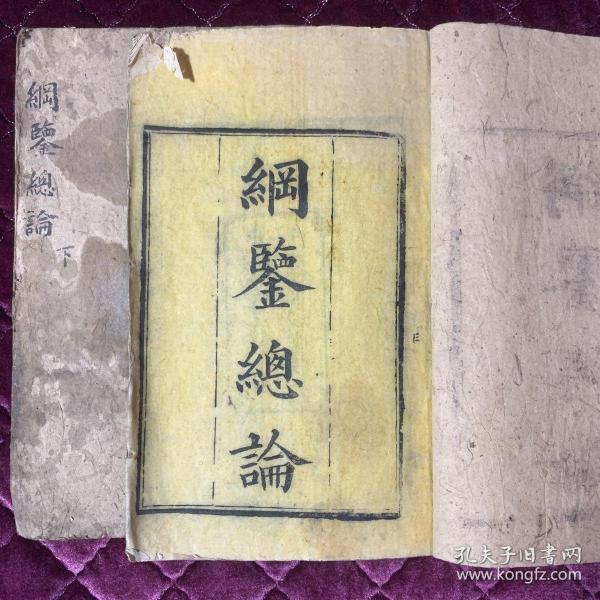 綱鑒總論
下
綱鑒總論
孔夫子旧书网
www.kongfz.com